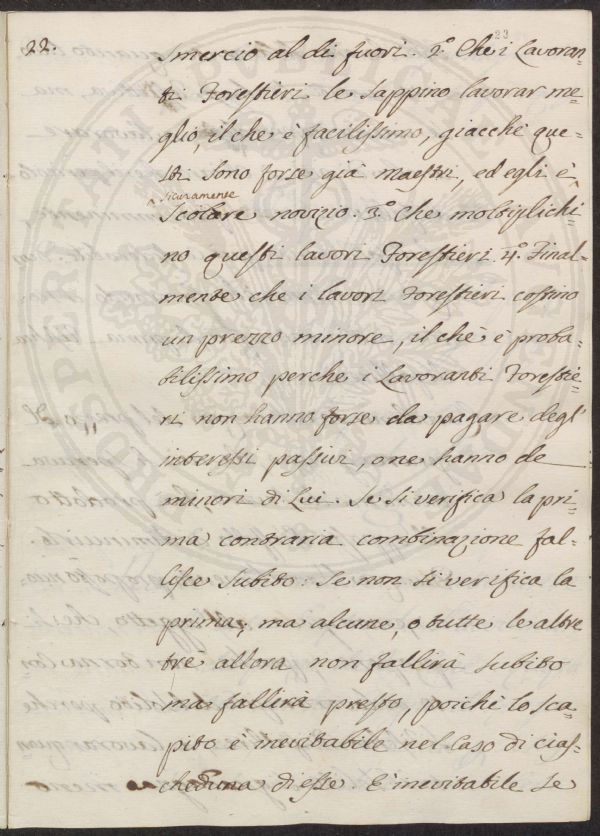 23
22.
smercio al di fuori. 2.° Che i Lavoran=
ti Forestieri le sappino lavorar me=
glio, il che è facilissimo, giacchè que=
sti sono forse già maestri, ed egli è
sicuramente
Scolare novizio. 3.° Che moltiplichi=
no questi lavori Forestieri. 4.° Final=
mente che i lavori Forestieri costino
un prezzo minore, il chè è proba=
bilissimo perche i Lavoranti Forestie=
ri non hanno forse da pagare degl'
interessi passivi, o ne hanno de
minori di Lui. Se si verifica la pri=
ma contraria combinazione fal=
lisce subito: Se non si verifica la
prima, ma alcune, o tutte le altre
trè allora non fallirà subito
ma fallirà presto, poichè lo sca=
pito è inevitabile nel Caso di cias=
cheduna di esse. È inevitabile se